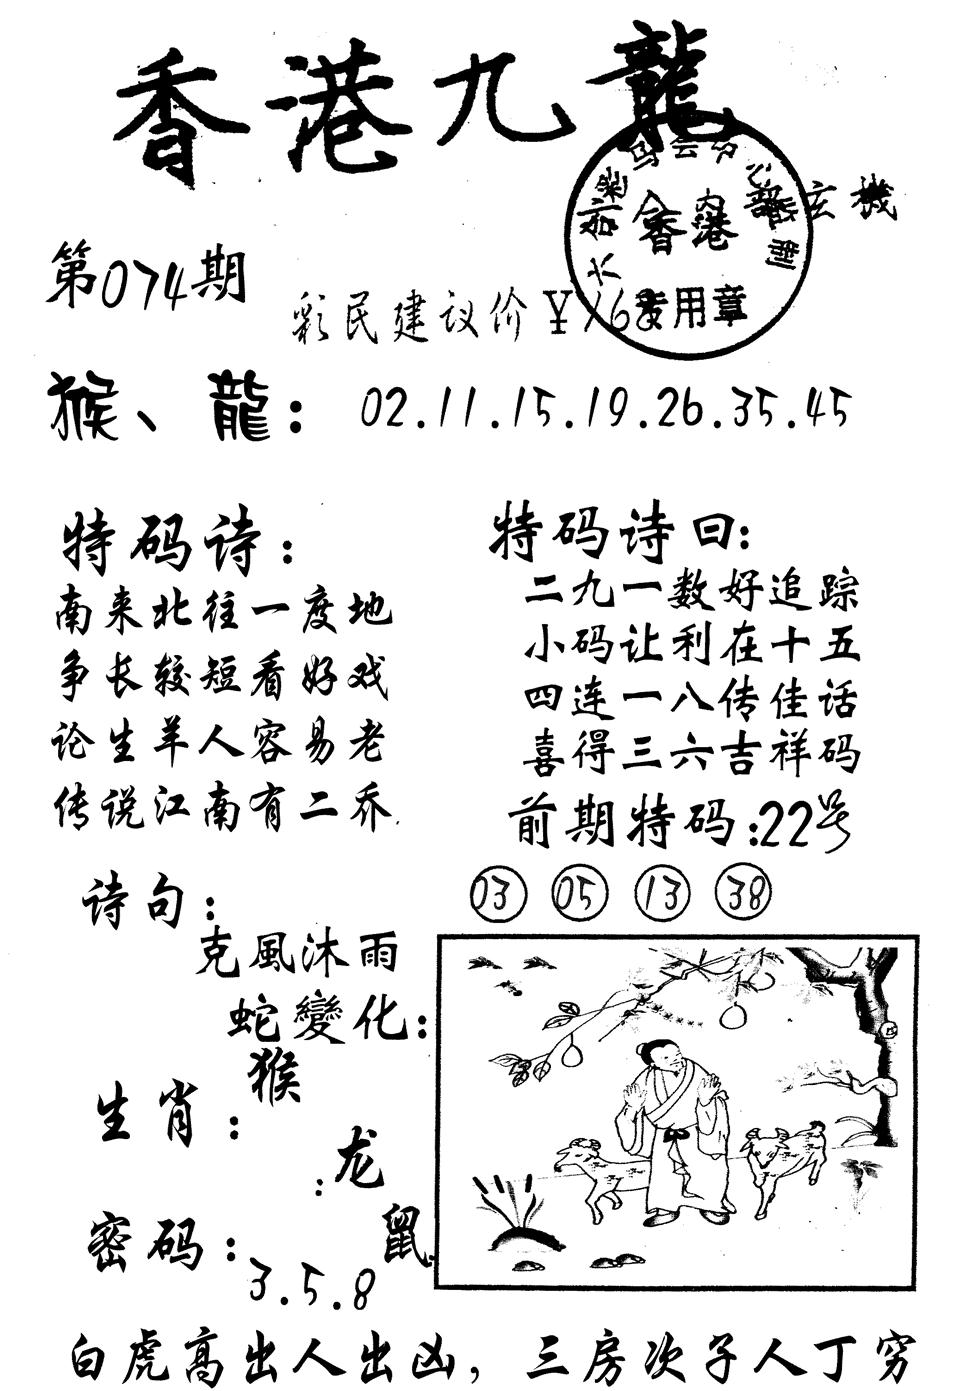 香港九龍
内部玄機
香港
专用章
第074期
彩民建议价¥168
猴、龍：02.11.15.19.26.35.45
特码诗：
南来北往一度地
争长较短看好戏
论生羊人容易老
传说江南有二乔
特码诗曰：
二九一数好追踪
小码让利在十五
四连一八传佳话
喜得三六吉祥码
前期特码：22号
03 05 13 38
诗句：
克風沐雨
蛇變化：
生肖：
猴
：龙
鼠
密码：
3.5.8
白虎高出人出凶，三房次子人丁穷